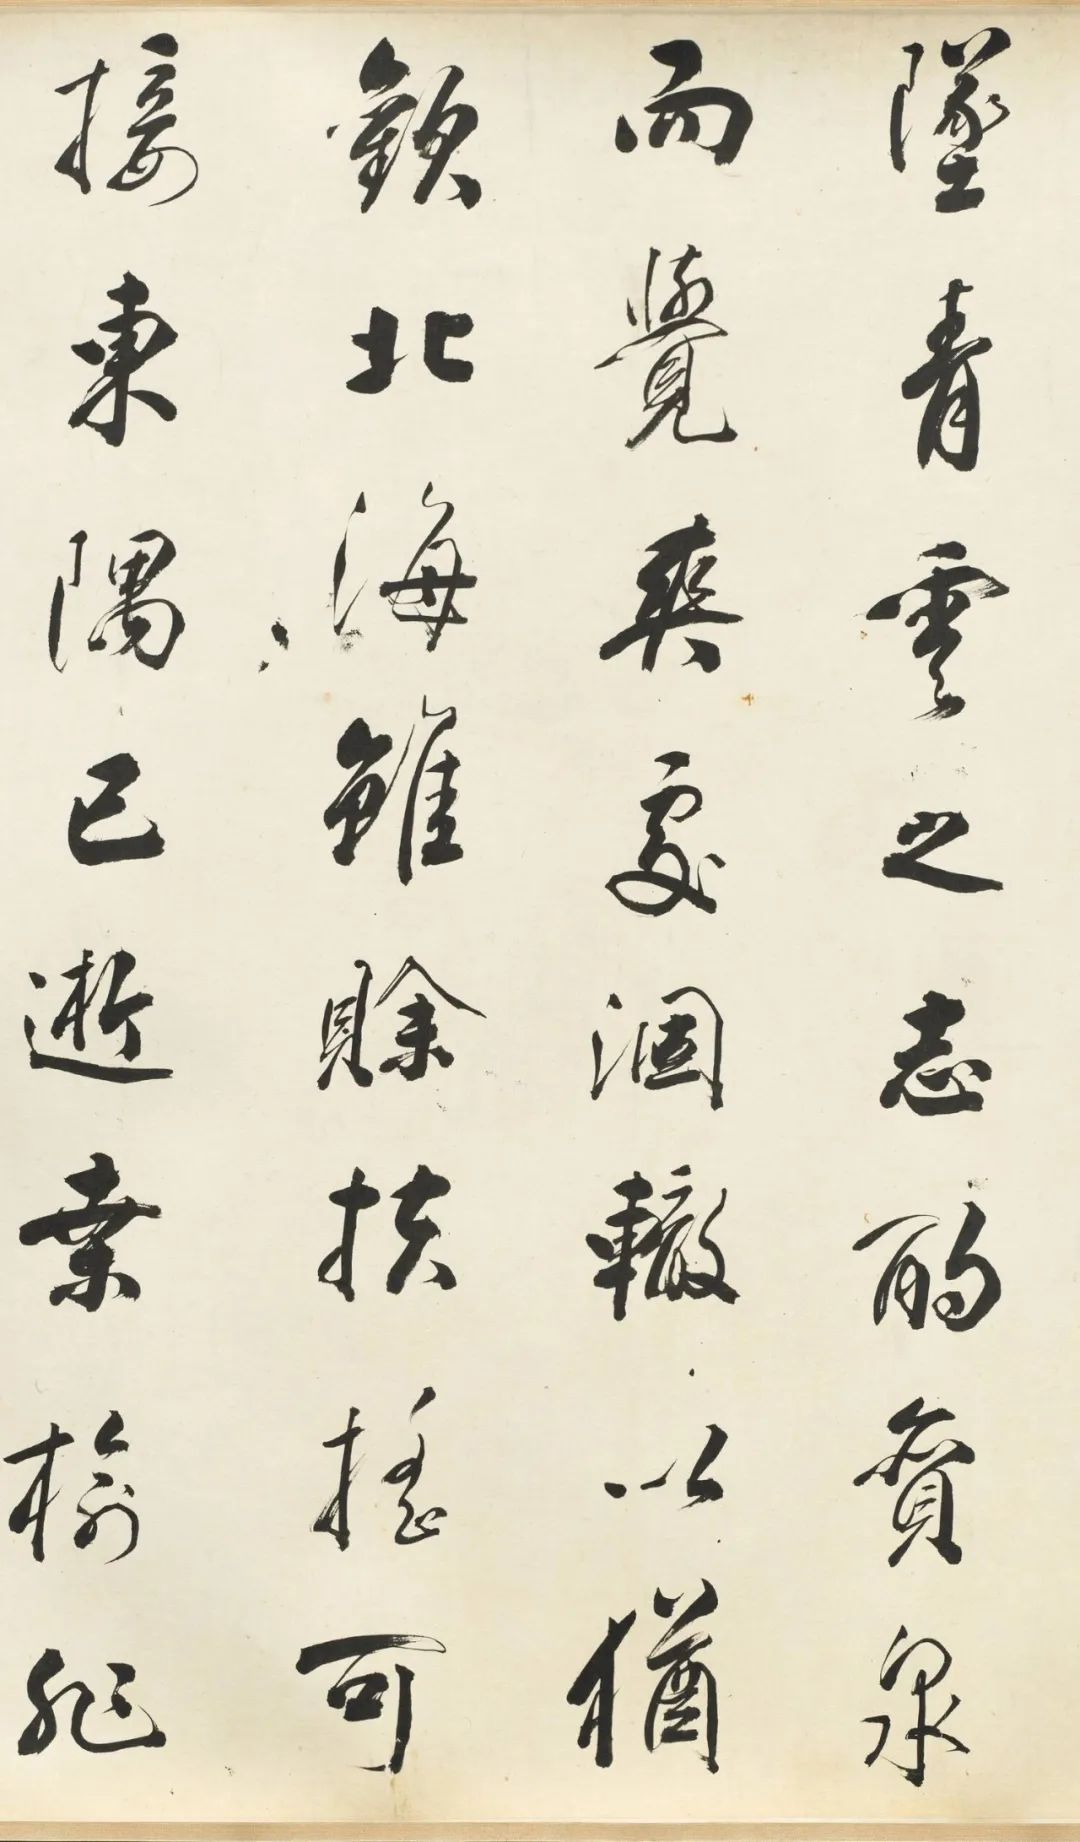 墬青雲之志酌貪泉
而覺爽處涸轍以猶
歡北海雖賒扶搖可
接東隅已逝桑榆非